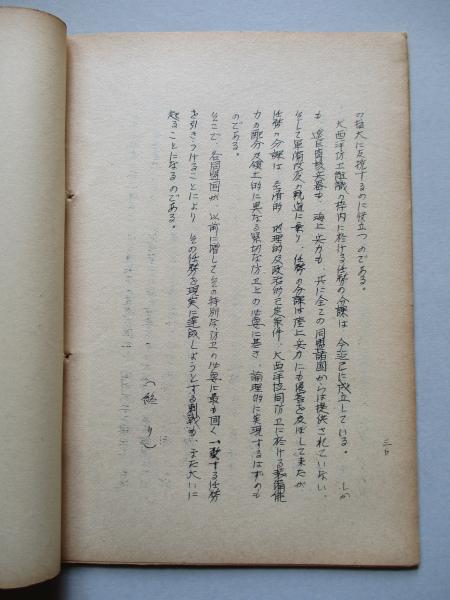 の拡大に反撥するのに役立つのである。
大西洋防卫組織の枠内に於ける任務の分課は 今迄已に成立している。 しか
も 遠距離核兵器も、海上兵力も、共に全ての同盟諸国からは提供されていない、
そして軍備改良の軌道に乗り 任務の分課は陸上兵力にも影響を及ぼして来たが
任務の分課は 経済的 地理的及政治的已定条件、大西洋協同防卫に於ける装備能
力の配分及領土的に異なる緊切な防卫上の必要に基き、論理的に実現するはずのも
のである。
そこで、各同盟国が、以前に増してその特別な防卫の必要に最も固く一致する任務
を引きつけることにより その任務を現実に達成しようとする刺戟も、また大いに
起ることになるのである。
(終り)
三七